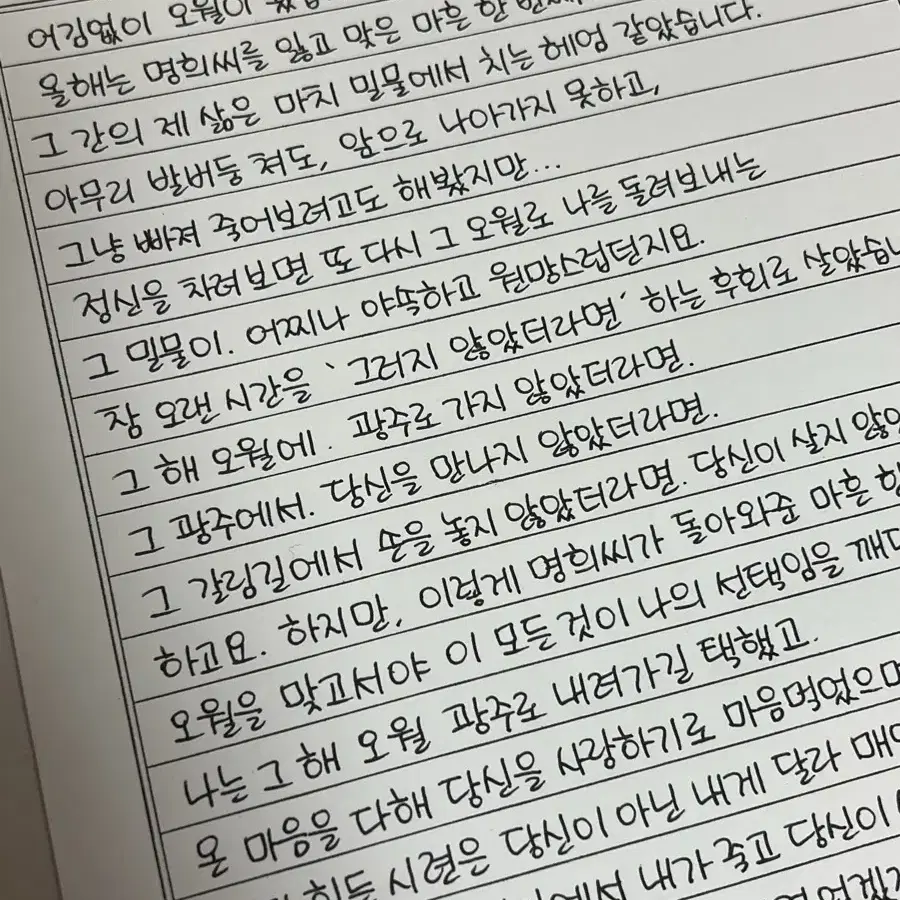 어김없이 오월이
올해는 명희씨를 잃고 맞은 마흔 한
그 간의 제 삶은 마치 밀물에서 치는 헤엄 같았습니다.
아무리 발버둥 쳐도, 앞으로 나아가지 못하고,
그냥 빠져 죽어보려고도 해봤지만...
정신을 차려보면 또 다시 그 오월로 나를 돌려보내는
그 밀물이. 어찌나 야속하고 원망스럽던지요.
참 오랜 시간을 '그러지 않았더라면' 하는 후회로 살았습니
그 해 오월에. 광주로 가지 않았더라면.
그 광주에서. 당신을 만나지 않았더라면.
그 갈림길에서 손을 놓지 않았더라면. 당신이 살지 않았
하고요. 하지만, 이렇게 명희씨가 돌아와준 마흔 한
오월을 맞고서야 이 모든것이 나의 선택임을 깨
나는 그 해 오월 광주로 내려가길 택했고.
온 마음을 다해 당신을 사랑하기로 마음먹었으며
힘든 시련은 당신이 아닌 내게 달라 매
에서 내가 죽고 당신이